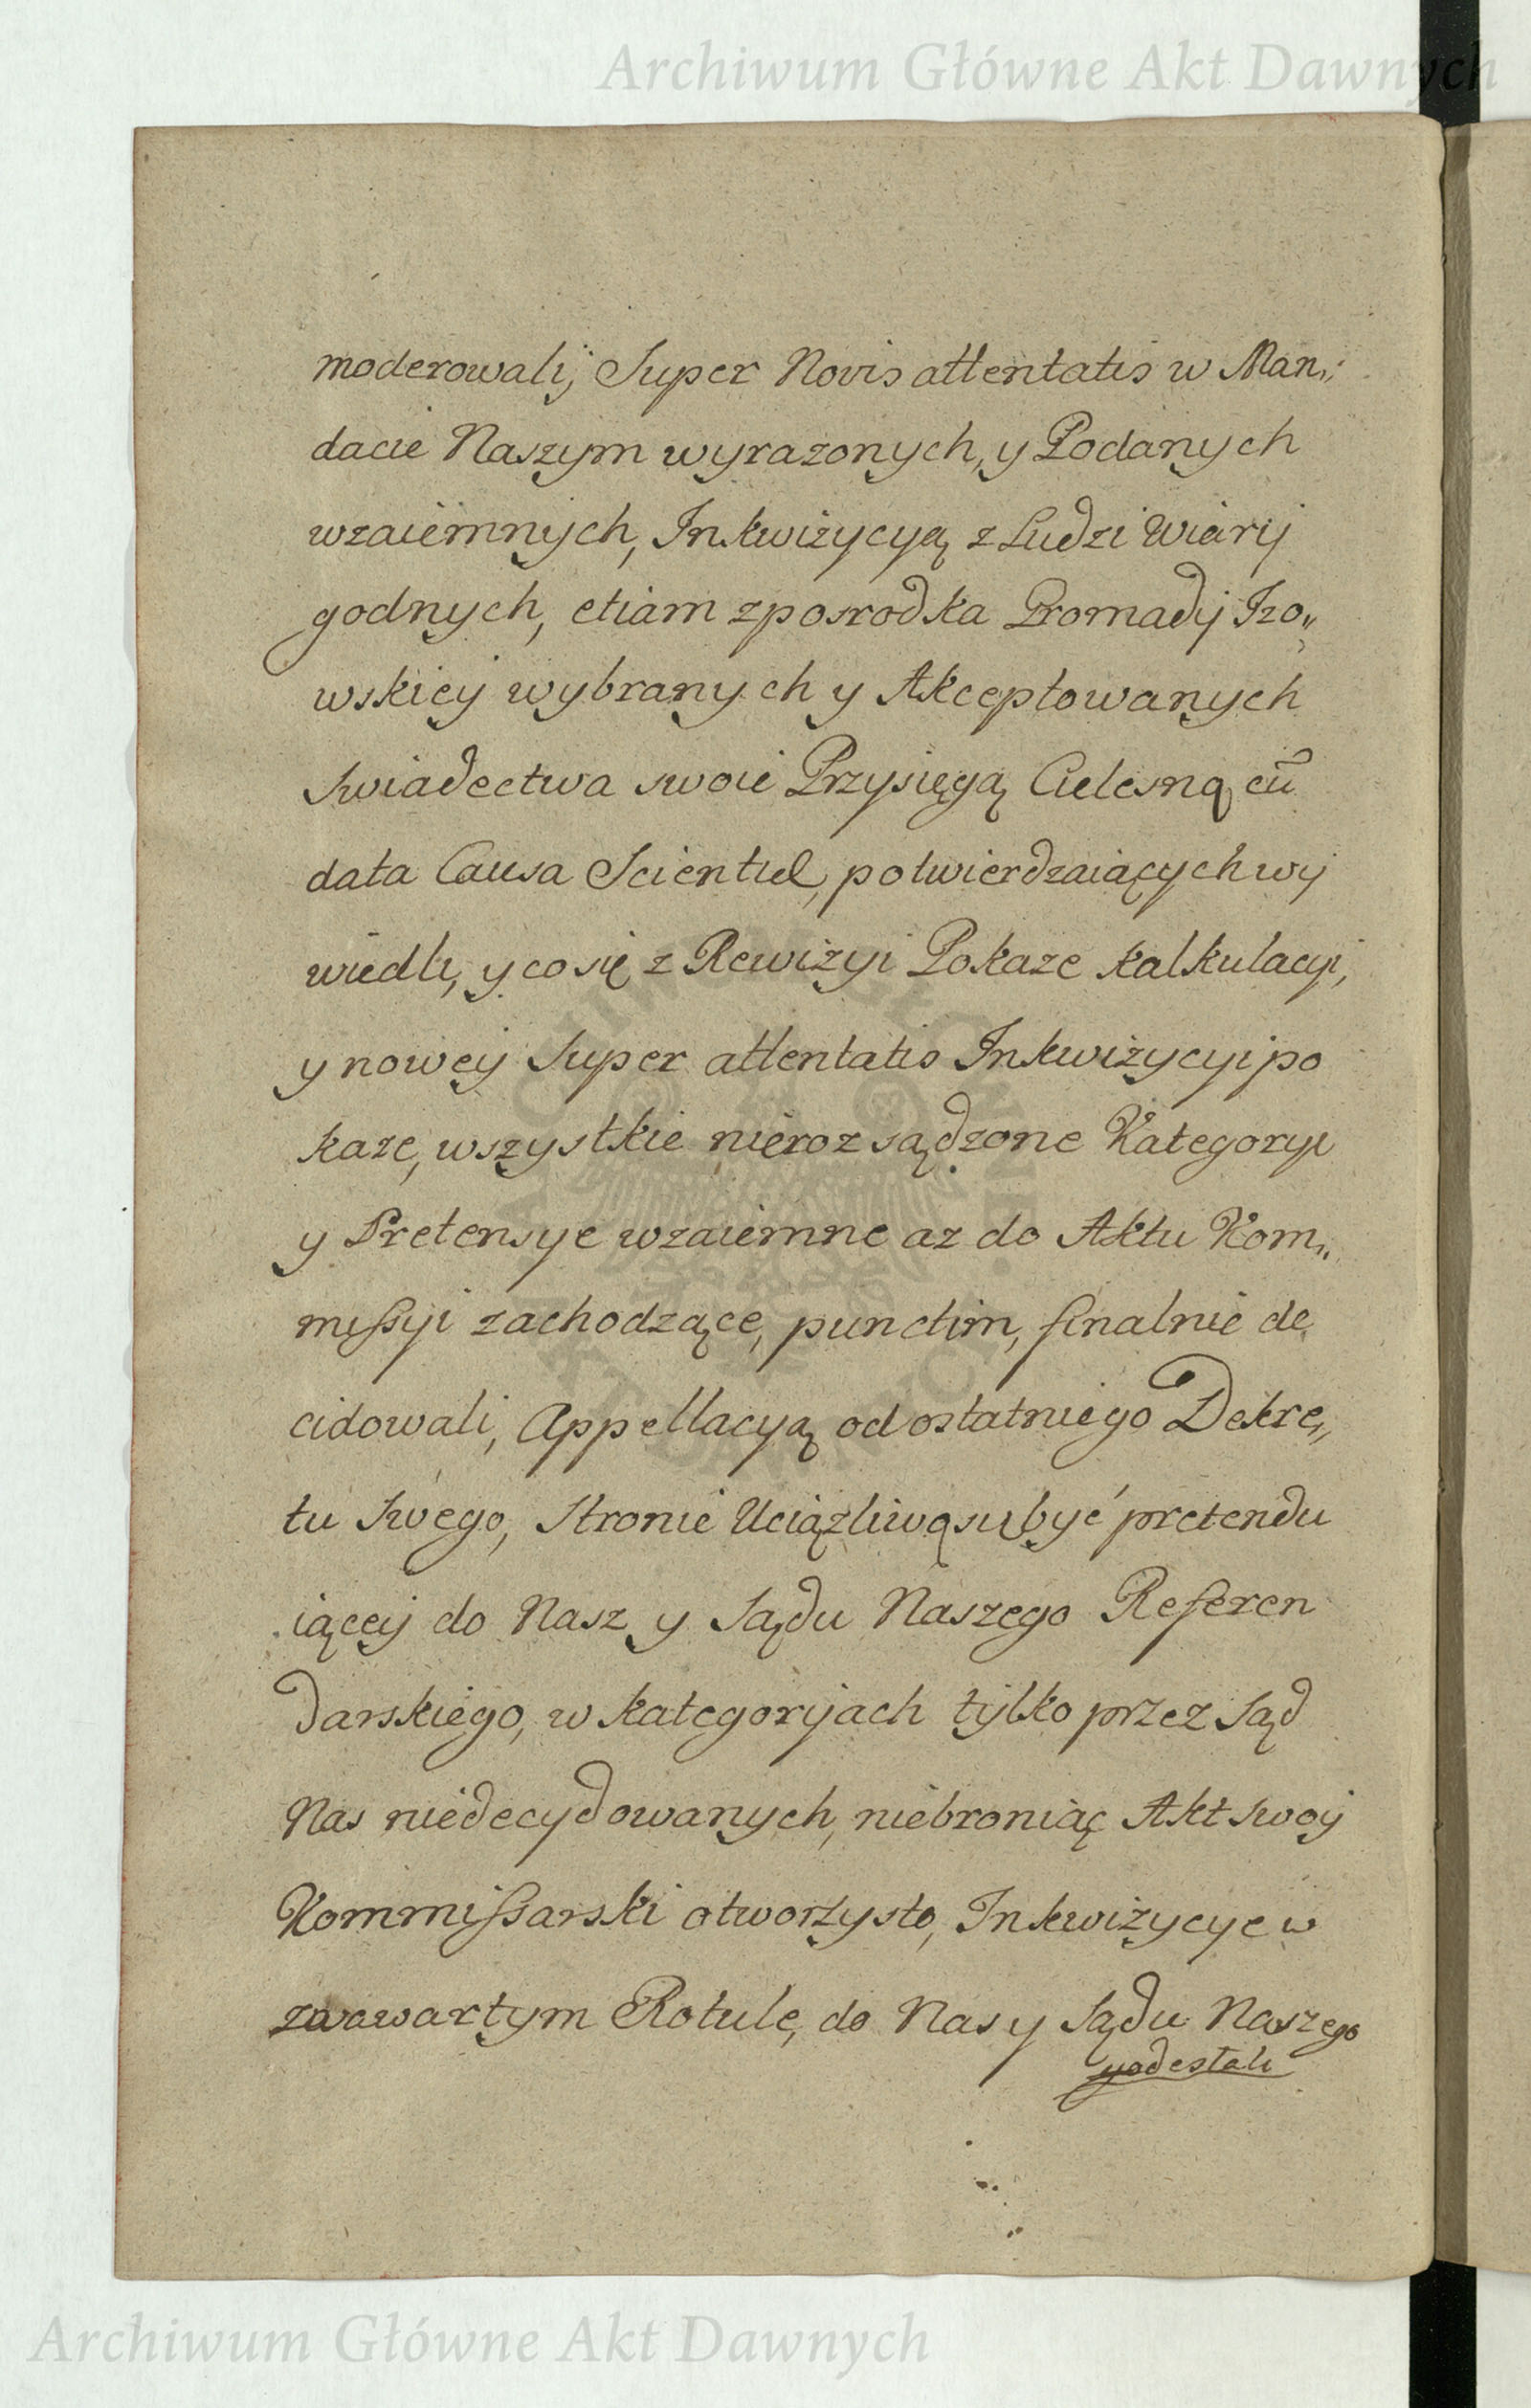 Archiwum Główne Akt Dawnych
moderowali, Super Novis attentatis w Man„
dacie Naszym wyrazonych, y Podanych
wzaiemnych, Inkwizycyą z Ludzi Wiary
godnych, etiam zposrodka Gromady Izo„
wskiey wybranych y Akceptowanych
swiadectwa swoie Przysięgą Cielesną cũ
data Causa Scientiæ, potwierdzaiących wy
wiedli, y co się z Rewizyi Pokaze kalkulacyi,
y nowey Super attentatis Inkwizycyi po
kaze, wszystkie nierozsądzone Kategorye
y Pretensye wzaiemne az do Aktu Kom„
missyi zachodzące, punctim, finalnie de
cidowali, Appellacyą od ostatniego Dekre„
tu swego, stronie Uciązliwą się być pretendu
iącey do Nasz y Sądu Naszego Referen
darskiego, w kategoryjach tylko przez Sąd
Nas niedecydowanych, niebroniąc Akt swoy
Kommissarski otworzysto, Inkwizycye w
zawartym Rotule, do Nas y Sądu Naszego
podestali
Archiwum Główne Akt Dawnych